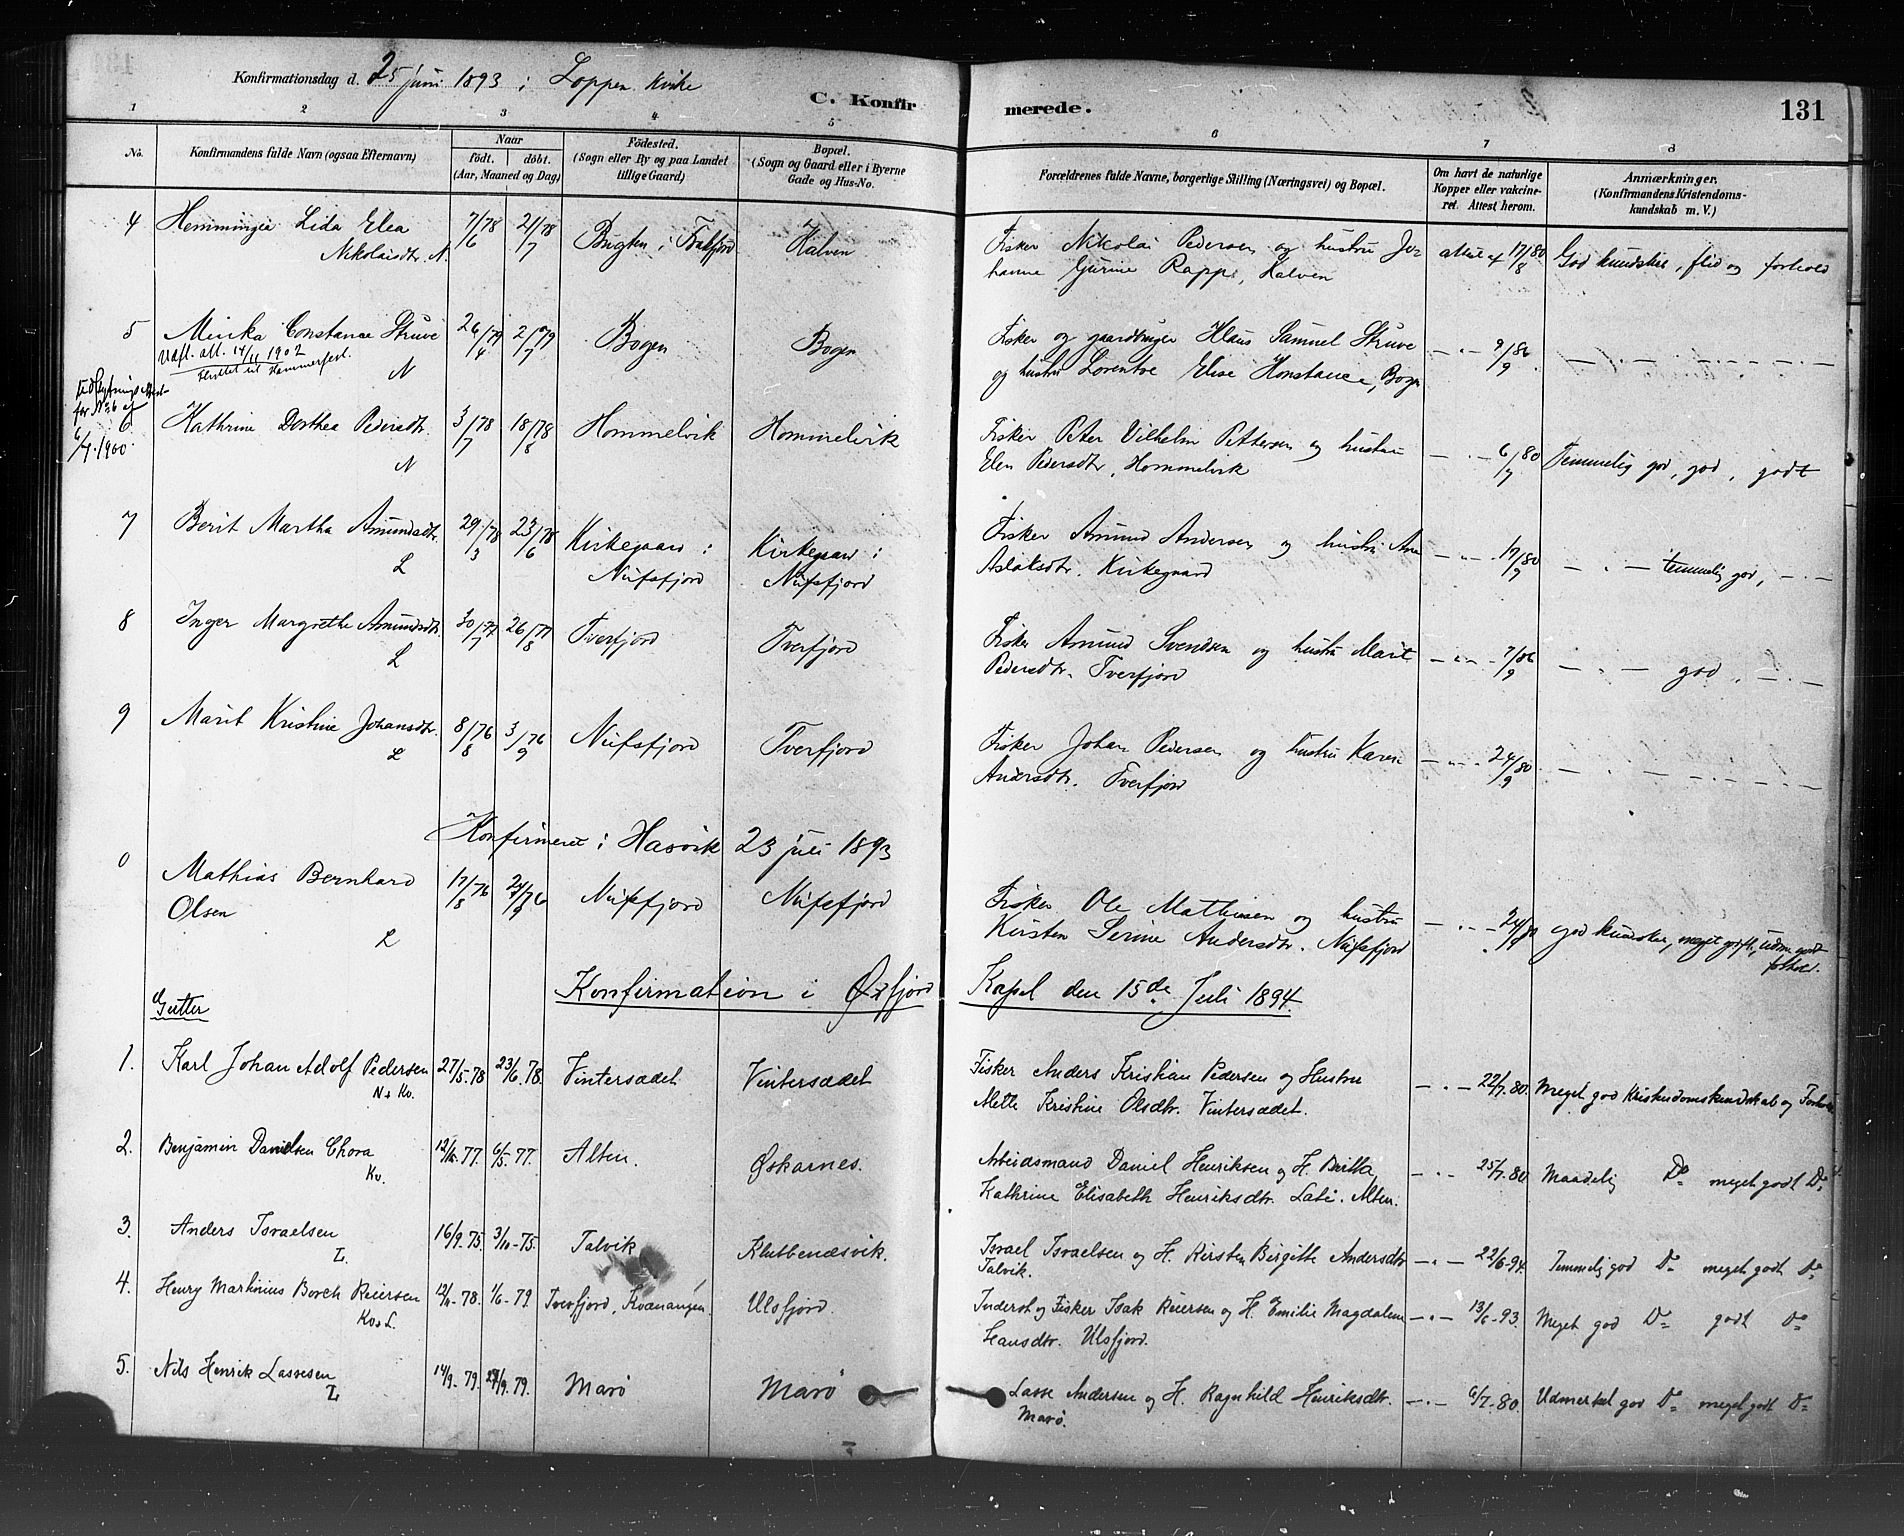 Konfirmationsdag d. 25 juni 1893 i Loppen Kirke
C. Konfirmerede.
131
1 2 3 4 5 6 7 8
No.
Konfirmandens fulde Navn (ogsaa Efternavn)
Naar
født. døbt.
(Aar, Maaned og Dag)
Fødested.
(Sogn eller By og paa Landet
tillige Gaard)
Bopæl.
(Sogn og Gaard eller i Byerne
Gade og Hus-No.
Forældrenes fulde Navne, borgerlige Stilling (Næringsvei) og Bopæl.
Om havt de naturlige
Kopper eller vakcine-
ret. Attest herom.
Anmærkninger.
(Konfirmandens Kristendoms-
kundskab m. V.)
4 Hemmingea Lida Elea 7/6 78 21/7 78 Bugten i Halven
Nikolaisdtr. N.
Fisker Nikolai Pedersen og hustru Jo-
hanne Gurine Rapp, Halven
attest af 17/8 80 God kundskab, flid og forhold
5 Minka Constance Struve 26/4 79 2/7 79 Bogen Bogen
Udfl. att. 14/11 1902
flyttet til Hammerfest.
N
Fisker og gaardbruger Klaus Samuel Struve
og hustru Lorentze Elise Konstance, Bogen
— " — 9/9 86 — — —
Udflytnings Attest
for No 6 af
6/7. 1900.
6 Kathrine Dorthea Pedersdtr. 3/7 78 18/8 78 Hommelvik Hommelvik
N
Fisker Peter Vilhelm Pettersen og hustru
Elen Pedersdtr, Hommelvik
— " — 6/7 80 Temmelig god, god, godt
7 Berit Martha Amundsdtr. 29/3 78 23/6 78 Kirkegaard i Kirkegaard i
L Nufsfjord Nufsfjord
Fisker Amund Andersen og hustru Ane
Aslaksdtr. Kirkegaard
— " — 17/9 80 — " — temmelig god, — " —
8 Inger Margrethe Amundsdtr. 30/7 77 26/8 77 Tverfjord Tverfjord
L
Fisker Amund Svendsen og hustru Marit
Pedersdtr. Tverfjord
— " — 7/9 86 — " — god, — " —
9 Marit Kristine Johansdtr. 8/8 76 3/9 76 Nufsfjord Tverfjord
L
Fisker Johan Pedersen og hustru Karen
Andersdtr. Tverfjord
— " — 24/9 80 — " —
Konfirmeret i Hasvik 23 juli 1893
0 Mathias Bernhard 17/8 76 24/9 76 Nufsfjord Nufsfjord
Olsen
L
Fisker Ole Mathisen og hustru
Kirsten Serine Andersdtr. Nufsfjord
— " — 24/9 80 god kundskab, meget god flid, udm. godt
forhold.
Konfirmation i Øxfjord Kapel den 15de Juli 1894.
Gutter
1. Karl Johan Adolf Pedersen 27/5-78 23/6.78. Vintersædet Vintersædet
N & Kv.
Fisker Anders Kristian Pedersen og Hustru
Mette Kristine Olsdtr. Vintersædet.
— " — 22/7.80. Meget god Kristendomskundskab og Forhold
2. Benjamin Danielsen Chora 77. 6/5.77. Alten. Øskarnes.
Kv.
Arbeidsmand Daniel Henriksen og H. Britta
Kathrine Elisabeth Henriksdtr. Alten.
— " — 25/7.80 Maadelig Do meget godt Do
3. Anders Israelsen 16/9-75. 3/10-75. Talvik Klubbenæsvik.
L.
Israel Israelsen og H. Kirsten Birgitte Andersdtr
Talvik.
— " — 22/6-94. Temmelig god Do meget godt Do
4. Henry Martinius Borch Reiersen 12/11-78. 1/6-79. Tverfjord, Kvænangen Ulsfjord.
Kv & L.
Inderst og Fisker Isak Reiersen og H. Emilie Magdalene
Hansdtr. Ulsfjord.
— " — 13/6-93. Meget god Do godt Do
5. Nils Henrik Lassesen 14/9-79. 79. Marö Marö
L
Lasse Andersen og H. Ragnhild Henriksdtr.
Marö.
— " — 6/7-80. Udmerket god Do meget godt Do